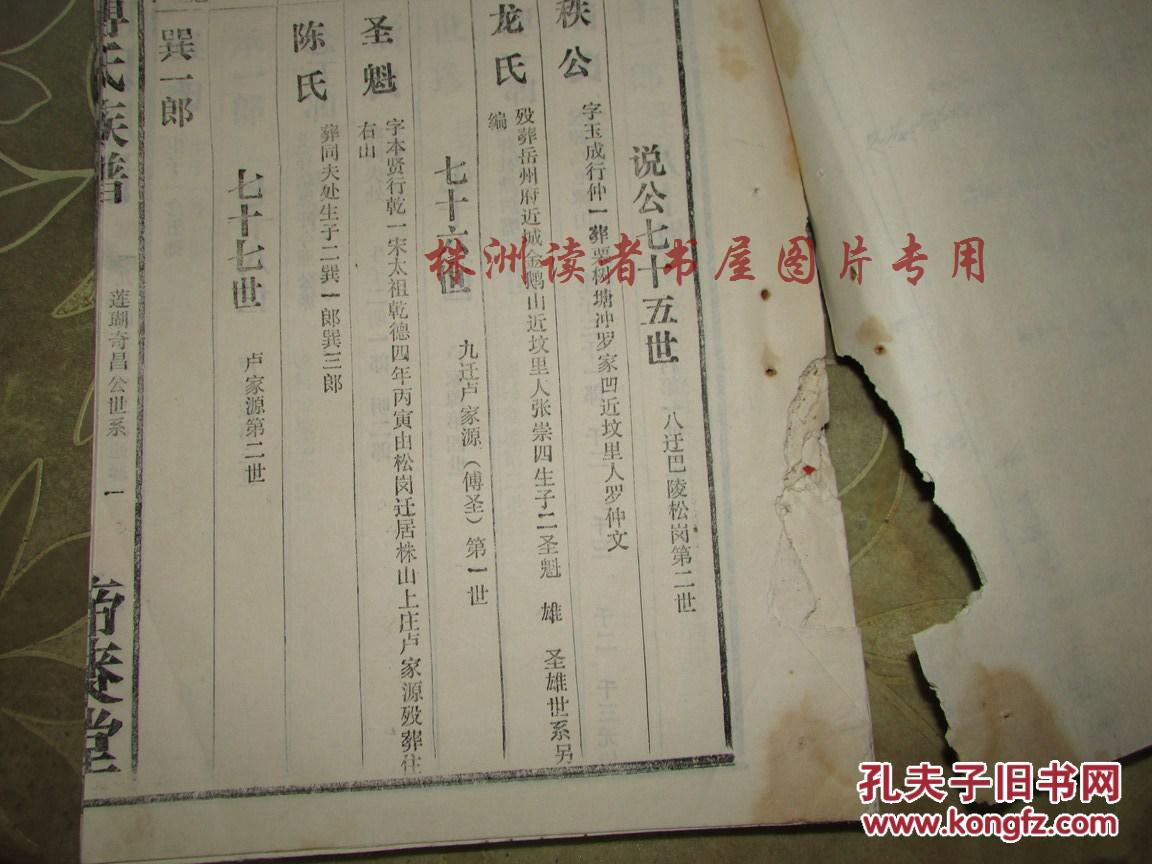 说公七十五世
八迁巴陵松岗第二世
秩公
字玉成行仲一葬栗树塘冲罗家凹近坟里人罗仲文
龙氏
殁葬岳州府近城金鹅山近坟里人张崇四生子二圣魁 雄 圣雄世系另
编
七十六世
九迁卢家源（傅圣）第一世
圣魁
字本贤行乾一宋太祖乾德四年丙寅由松岗迁居株山上庄卢家源殁葬往
右山
陈氏
葬同夫处生子二巽一郎巽三郎
七十七世
卢家源第二世
巽一郎
傅氏族谱
莲瑚奇昌公世系
一
堂
株洲读者书屋图片专用
孔夫子旧书网
www.kongfz.com